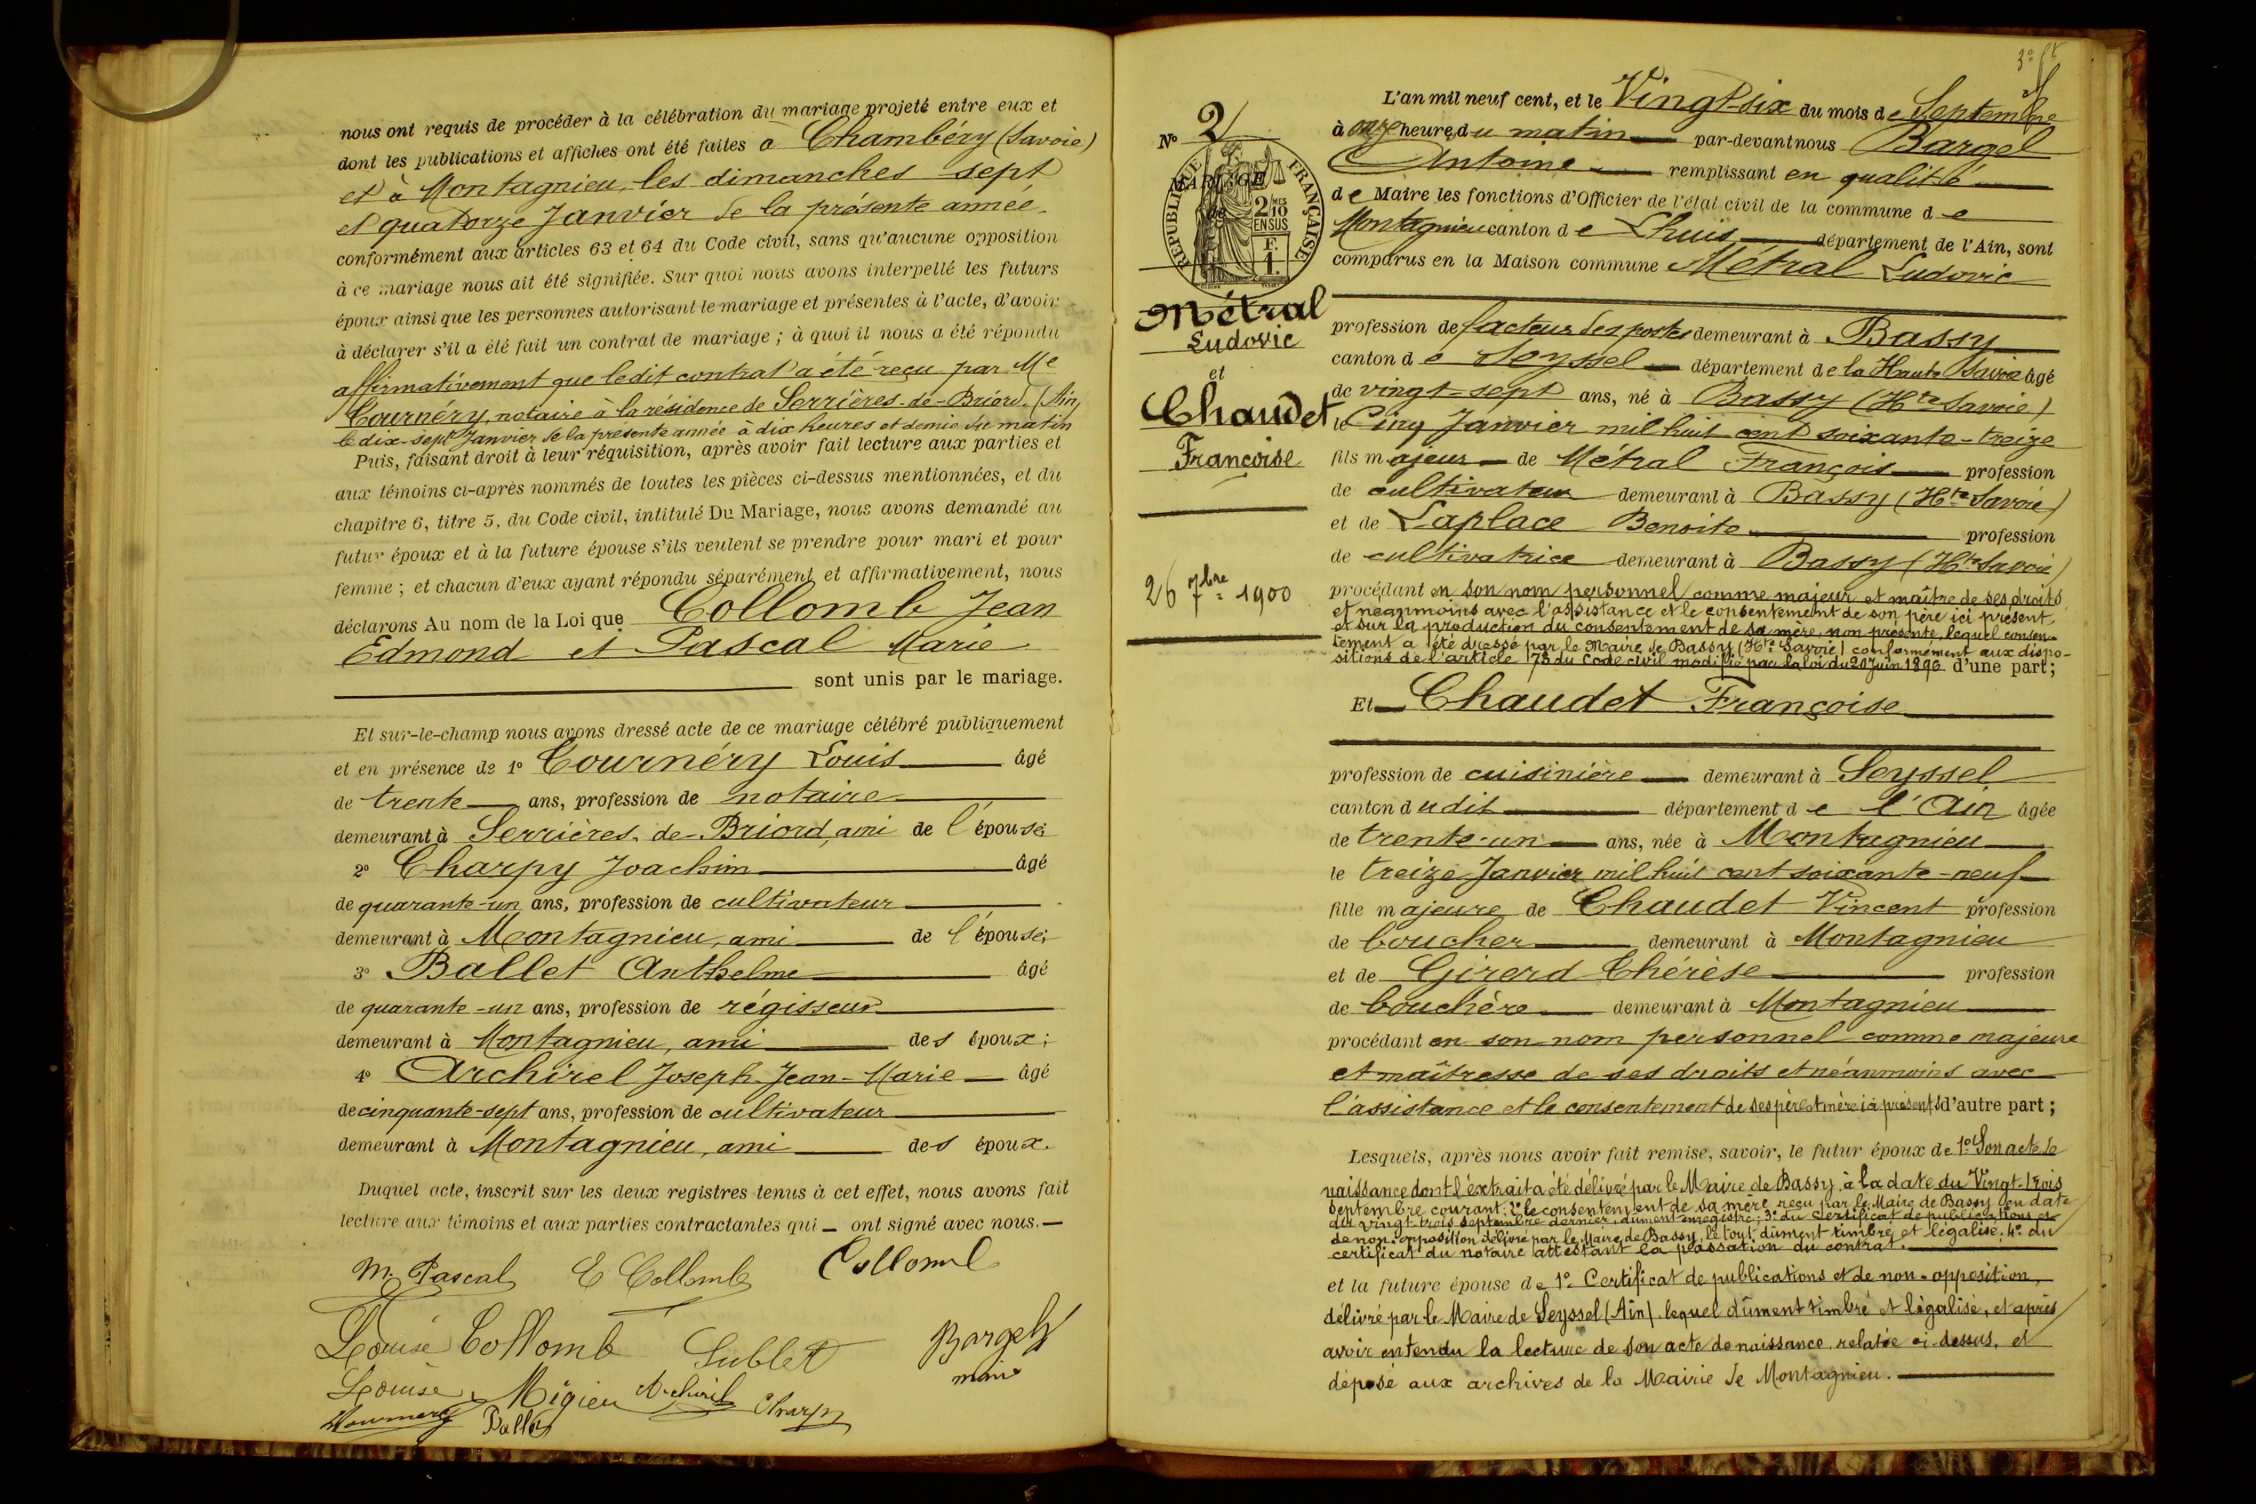 nous ont requis de procéder à la célébration du mariage projeté entre eux et
dont les publications et affiches ont été faites à Chambéry (Savoie)
et à Montagnieu, les dimanches sept
et quatorze Janvier de la présente année,
conformément aux articles 63 et 64 du Code civil, sans qu'aucune opposition
à ce mariage nous ait été signifiée. Sur quoi nous avons interpellé les futurs
époux ainsi que les personnes autorisant le mariage et présentes à l'acte, d'avoir
à déclarer s'il a été fait un contrat de mariage ; à quoi il nous a été répondu
affirmativement que ledit contrat a été reçu par Me
Cournéry, notaire à la résidence de Serrières-de-Briord (Ain)
le dix-sept Janvier de la présente année à dix heures et demie du matin
Puis, faisant droit à leur réquisition, après avoir fait lecture aux parties et
aux témoins ci-après nommés de toutes les pièces ci-dessus mentionnées, et du
chapitre 6, titre 5, du Code civil, intitulé Du Mariage, nous avons demandé au
futur époux et à la future épouse s'ils veulent se prendre pour mari et pour
femme ; et chacun d'eux ayant répondu séparément et affirmativement, nous
déclarons Au nom de la Loi que Collomb Jean
Edmond et Pascal Marie
sont unis par le mariage.
Et sur-le-champ nous avons dressé acte de ce mariage célébré publiquement
et en présence de 1° Cournéry Louis âgé
de trente ans, profession de notaire
demeurant à Serrières-de-Briord, ami de l'épouse;
2° Charpy Joachim âgé
de quarante-un ans, profession de cultivateur
demeurant à Montagnieu, ami de l'épouse;
3° Ballet Anthelme âgé
de quarante-un ans, profession de régisseur
demeurant à Montagnieu, ami des époux;
4° Archirel Joseph Jean-Marie âgé
de cinquante-sept ans, profession de cultivateur
demeurant à Montagnieu, ami des époux.
Duquel acte, inscrit sur les deux registres tenus à cet effet, nous avons fait
lecture aux témoins et aux parties contractantes qui ont signé avec nous.
M. Pascal E Collomb Collomb
Louise Collomb Sublet Bargel
maire
Louise Migieu Archirel Charpy
Cournery Ballet
N° 2
MARIAGE
de
RÉPUBLIQUE FRANÇAISE
2 MES
10
EN SUS
F.
1.
Métral
Ludovic
et
Chaudet
Françoise
26 7bre 1900
L'an mil neuf cent, et le Vingt-six du mois de Septembre
à onze heures du matin par-devant nous Bargel
Antoine remplissant en qualité
de Maire les fonctions d'Officier de l'état civil de la commune de
Montagnieu canton de Lhuis département de l'Ain, sont
comparus en la Maison commune Métral Ludovic
profession de facteur des postes demeurant à Bassy
canton de Seyssel département de la Haute Savoie âgé
de vingt-sept ans, né à Bassy (Hte Savoie)
le Cinq Janvier mil huit cent soixante-treize
fils majeur de Métral François profession
de cultivateur demeurant à Bassy (Hte Savoie)
et de Laplace Benoite profession
de cultivatrice demeurant à Bassy (Hte Savoie)
procédant en son nom personnel comme majeur et maître de ses droits
et néanmoins avec l'assistance et le consentement de son père ici présent,
et sur la production du consentement de sa mère, non présente, lequel consen-
tement a été dressé par le Maire de Bassy (Hte Savoie) conformément aux dispo-
sitions de l'article 73 du Code civil modifié par la loi du 20 Juin 1896 d'une part;
Et Chaudet Françoise
profession de cuisinière demeurant à Seyssel
canton dudit département de l'Ain âgée
de trente-un ans, née à Montagnieu
le treize Janvier mil huit cent soixante-neuf
fille majeure de Chaudet Vincent profession
de boucher demeurant à Montagnieu
et de Girerd Thérèse profession
de bouchère demeurant à Montagnieu
procédant en son nom personnel comme majeure
et maîtresse de ses droits et néanmoins avec
l'assistance et le consentement de ses père et mère ici présents d'autre part ;
Lesquels, après nous avoir fait remise, savoir, le futur époux de 1° Son acte de
naissance dont l'extrait a été délivré par le Maire de Bassy, à la date du Vingt-trois
Septembre courant. 2° le consentement de sa mère reçu par le Maire de Bassy en date
du vingt-trois septembre dernier, dûment enregistré; 3° du certificat de publications et
de non-opposition délivré par le Maire de Bassy, le tout dûment timbré et légalisé. 4° du
certificat du notaire attestant la passation du contrat.
et la future épouse de 1° Certificat de publications et de non-opposition,
délivré par le Maire de Seyssel (Ain) lequel dûment timbré et légalisé, et après
avoir entendu la lecture de son acte de naissance, relatée ci-dessus, et
déposé aux archives de la Mairie de Montagnieu.